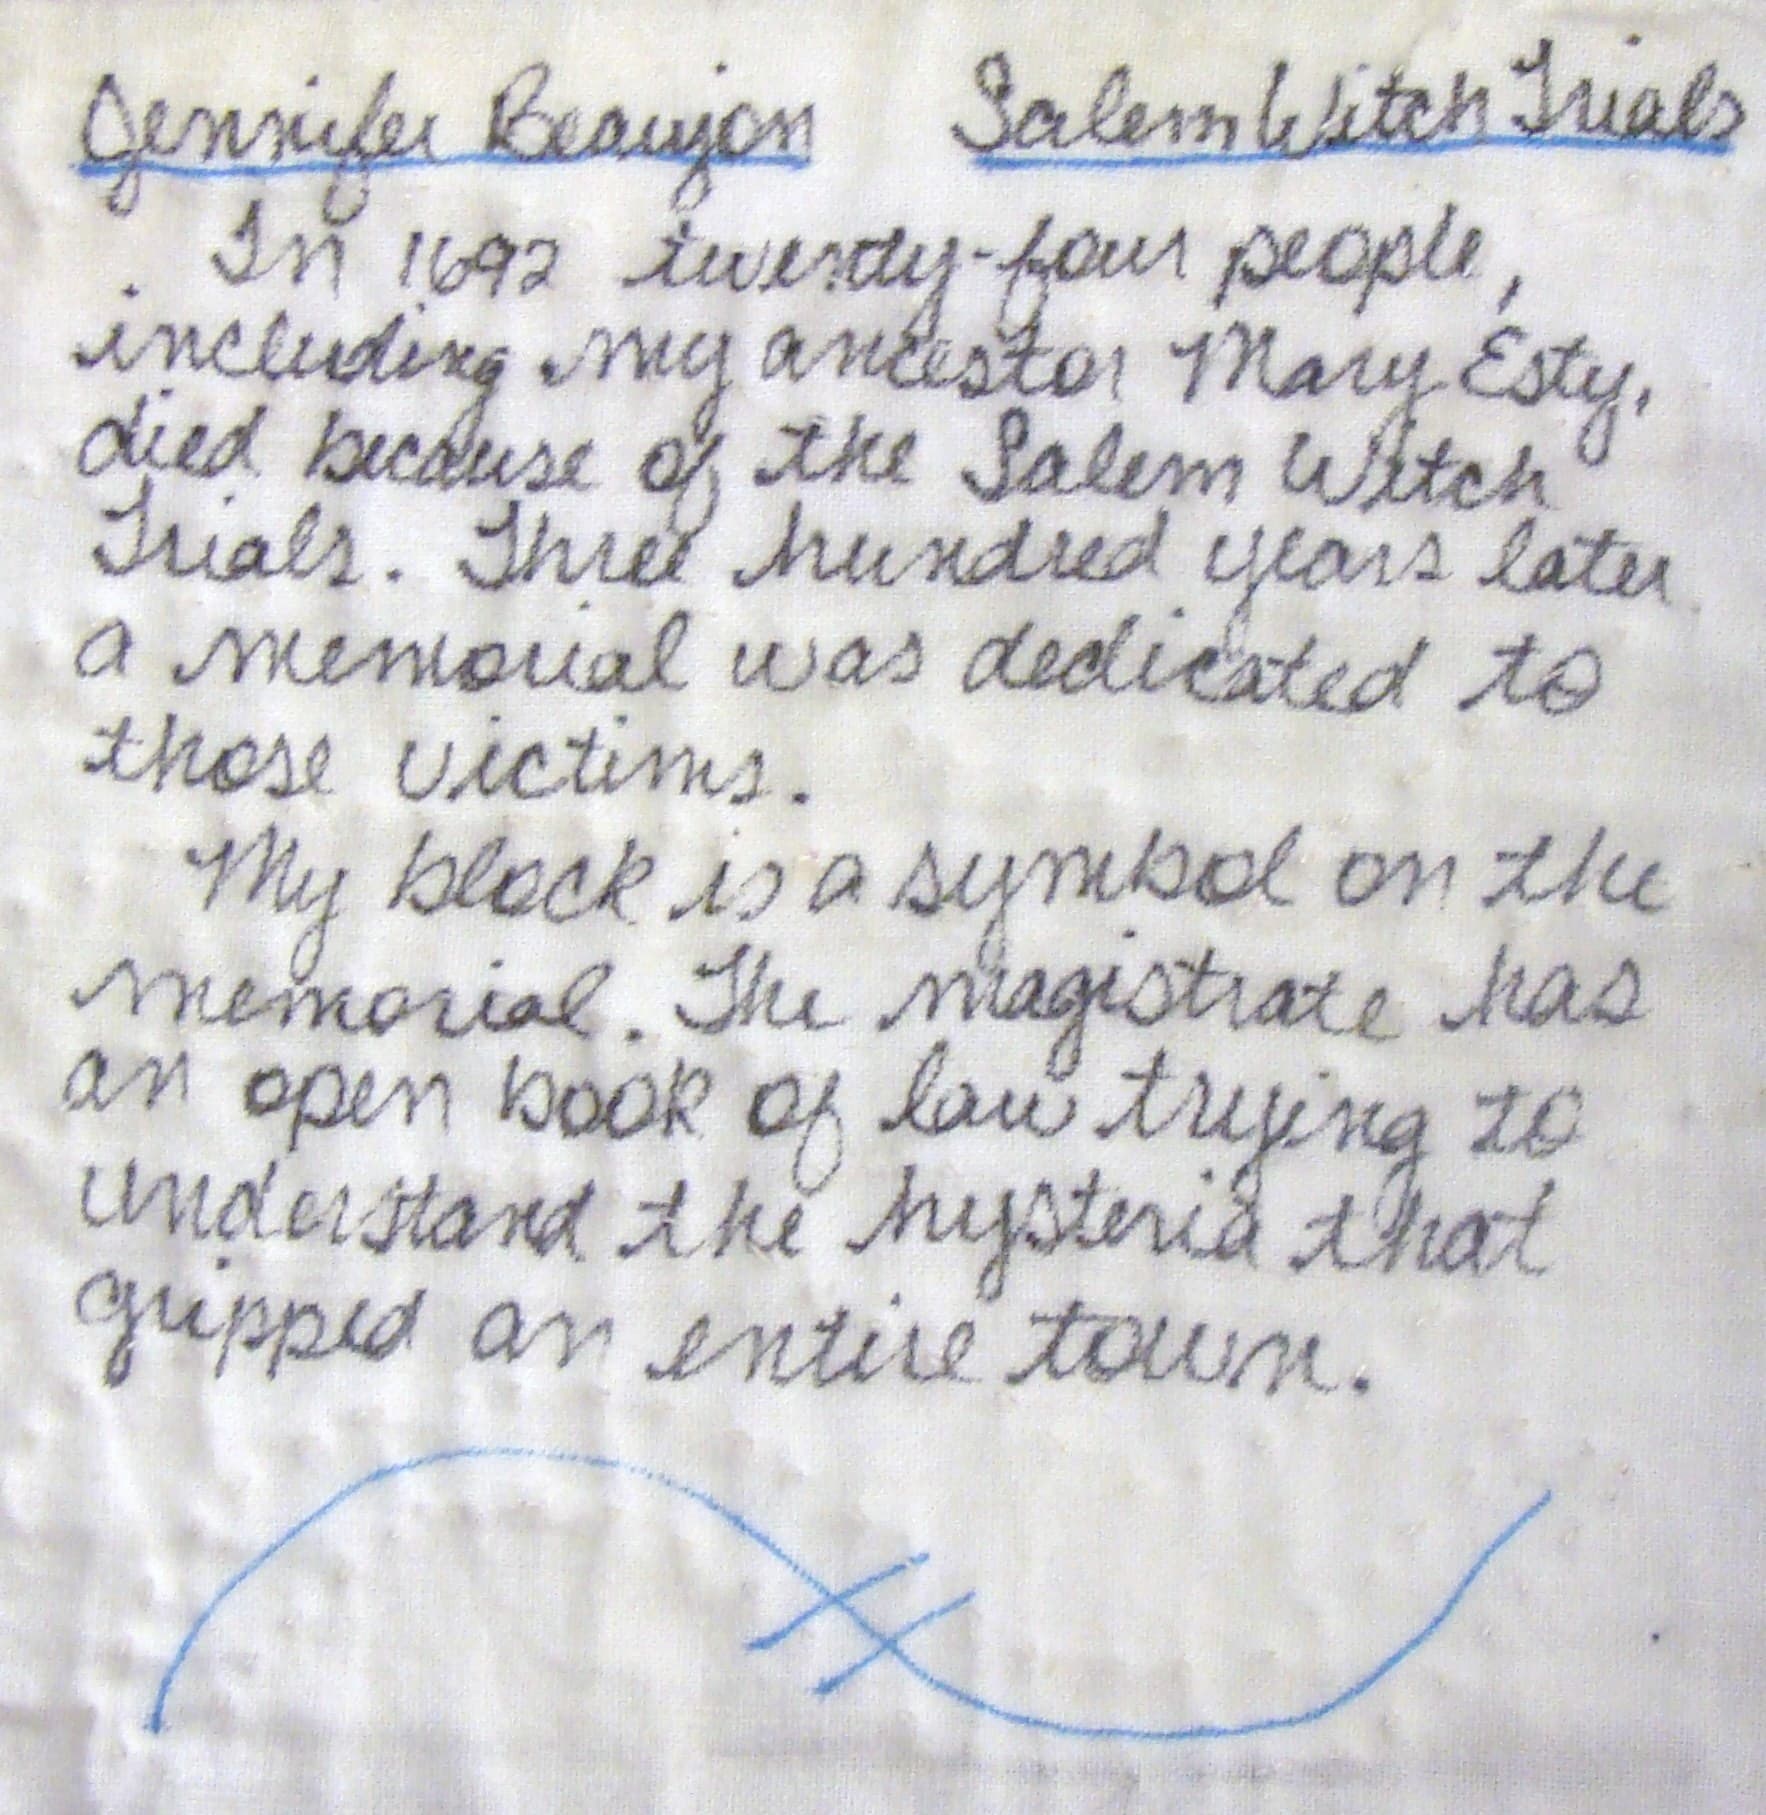 Jennifer Beaujon Salem Witch Trials
In 1692 twenty-four people,
including my ancestor Mary Esty,
died because of the Salem Witch
Trials. Three hundred years later
a memorial was dedicated to
those victims.
My block is a symbol on the
memorial. The magistrate has
an open book of law trying to
understand the hysteria that
gripped an entire town.